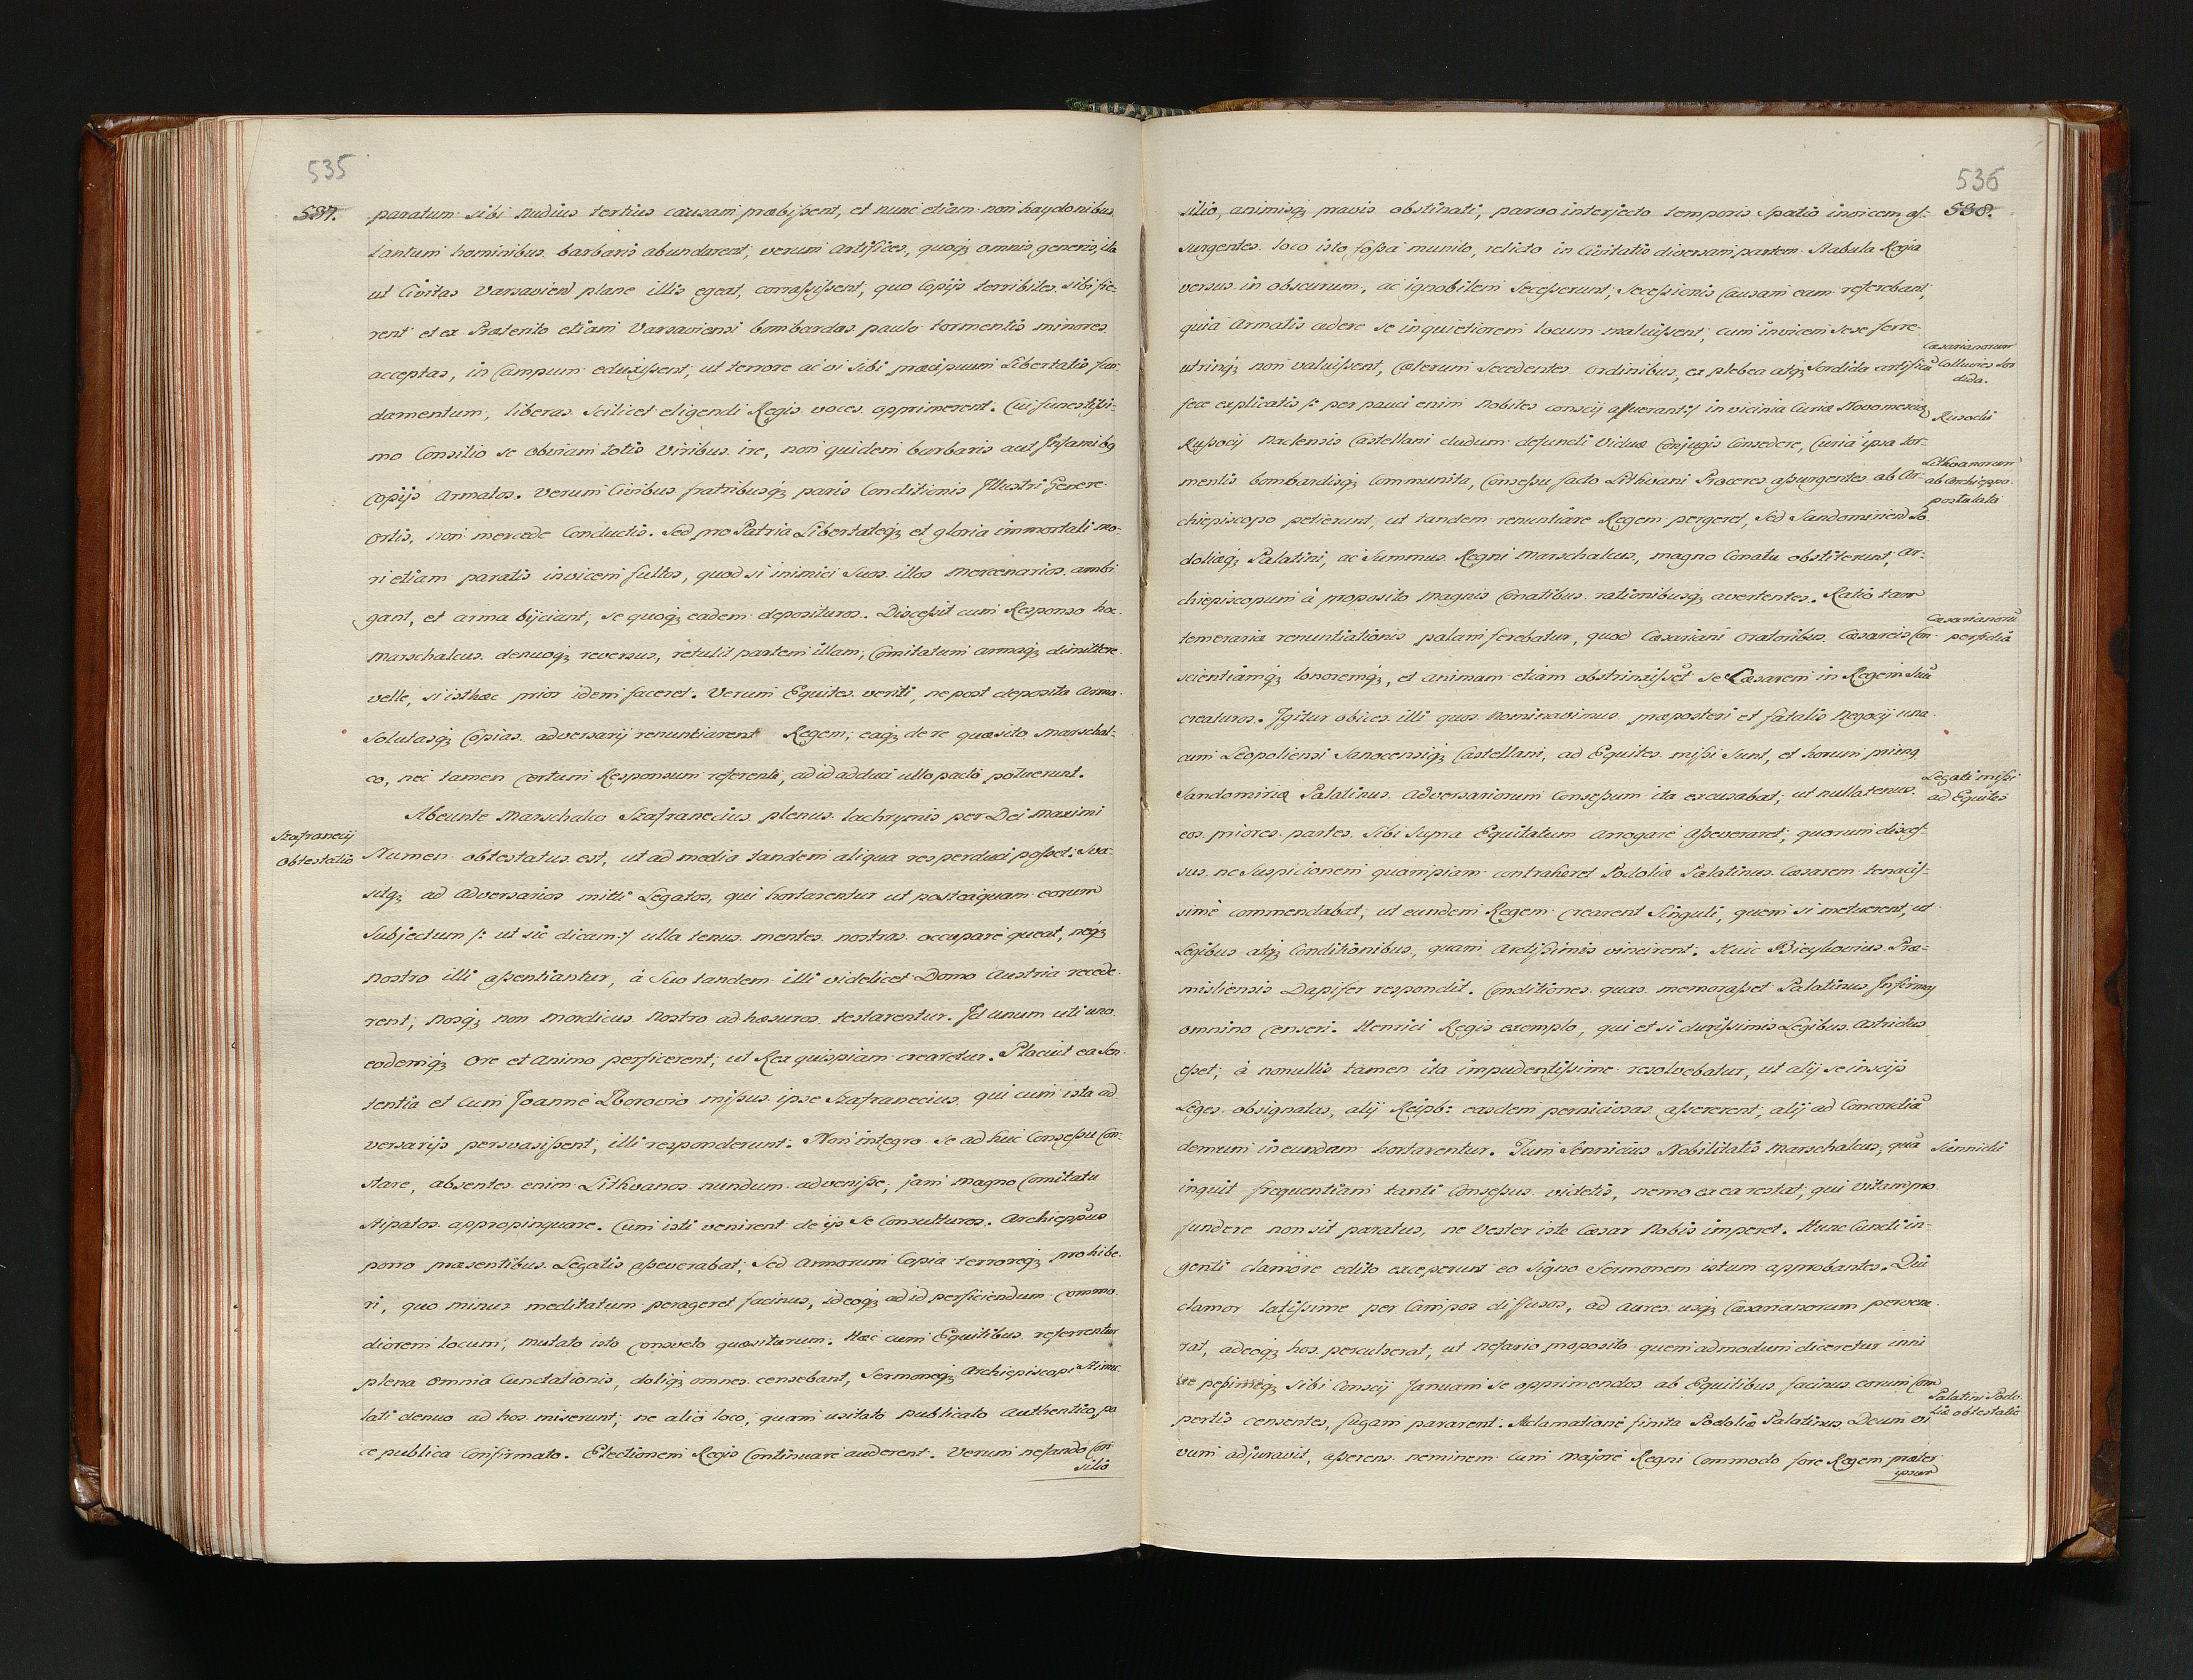 535
537.
paratum sibi nudius tertius causam præbißent, et nunc etiam non haydonibus
tantum hominibus barbaris abundarent, verum artifices, quoq; omnis generis, ita
ut Civitas Varsavien plane illis egeat, corraßißent, quo Copijs terribiles sibi fie-
rent et ex Præsertito etiam Varsaviensi bombardas paulo tormentis minores
acceptas, in Campum eduxißent, ut terrore ac vi sibi præcipuum Libertatis fun-
damentum, liberas scilicet eligendi Regis voces opprimerent. Cui funestißi-
mo Consilio se obviam totis Viribus ire, non quidem barbaris aut Infamibq
Copijs armatos. Verum Civibus fratribusq; paris Conditionis Illustri Genere
ortis, non mercede Conductis. Sed pro Patria Libertateq; et gloria immortali mo-
ri etiam paratis invicem fultos, quod si inimici Suos illos Mercenarios ambi
gant, et arma bijciant, se quoq; eadem deposituros. Disceßit cum Responso hoc
Marschalcus denuoq; reversus, retulit partem illam, Comitatum armaq; dimittere
velle, si isthæc prior idem faceret. Verum Equites veriti, ne post deposita Arma
Solutasq; Copias adversarij renuntiarent Regem, eaq; de re quæsito Marschal-
co, nec tamen certum Responsum referenti, ad id adduci ullo pacto potuerunt.
Abeunte Marschalco Szafranecius plenus lachrymis per Dei maximi
Szafranecij
obtestatio
Numen obtestatus est, ut ad media tandem aliqua res perduci poßet: Sua-
sitq; ad adversarios mitti Legatos, qui hortarentur ut postaquam eorum
Subjectum /: ut sic dicam :/ ulla tenus mentes nostras occupare queat, neq;
nostro illi aßentiantur, à Suo tandem illi videlicet Domo Austria recede-
rent, nosq; non mordicus nostro adhæsuros testarentur. Id unum uti uno
eodemq; ore et animo perficerent, ut Rex quispiam crearetur. Placuit ea Sen-
tentia et Cum Joanne Zborovio mißus ipse Szafranecius qui cum ista ad
versarijs persvasißent, illi responderunt. Non integro se ad huc Conseßu Con-
stare, absentes enim Lithvanos nundum adveniße, jam magno Comitatu
stipatos appropinquare. Cum isti venirent de ijs se Consulturos. Archieppus
porro præsentibus Legatis aßeverabat, Sed Armorum Copia terroreq; prohibe-
ri, quo minus meditatum perageret facinus, ideoq; ad id perficiendum commo-
diorem locum, mutato isto consveto quæsiturum. Hæc cum Equitibus referrentur
plena omnia Cunctationis, doliq; omnes censebant, Sermoneq; Archiepiscopi stimu
lati denuo ad hos miserunt, ne alio loco, quam usitato publicato authentico, pa
ce publica Confirmato. Electionem Regis Continuare auderent. Verum nefando Con-
silio
536
538.
silio, animisq; pravis obstinati, parvo interjecto temporis Spatio invicem aß-
surgentes loco isto foßa munito, relicto in Civitatis diversam partem Stabula Regia
versus in obscurum, ac ignobilem Seceßerunt, Seceßionis Causam eam referebant,
quia Armatis cedere se in quietiorem locum maluißent, cum invicem sese ferre
utrinq; non valuißent, Cæterum Secedentes ordinibus, ex plebea atq; Sordida artificũ
Cæsarianorum
Colluvies Sor
dida.
fece explicatis /: per pauci enim Nobiles conscij affuerant :/ in vicinia Curiæ Novomescian
Rusocki
Rußocij Naclensis Castellani dudum defuncti Viduæ Conjugis Consedere, Curia ipsa tor-
mentis bombardisq; Communita, Conseßu facto Lithvani Proceres aßurgentes ab Ar-
Lithvanorum
ab Archieppo
postulata
chiepiscopo petierunt, ut tandem renuntiare Regem pergeret, Sed Sandomirien Po
doliæq; Palatini, ac Summus Regni Marschalcus, magno Conatu obstiterunt, Ar-
chiepiscopum à proposito Magnis Conatibus rationibusq; avertentes. Ratio tam
temerariæ renuntiationis palam ferebatur, quod Cæsariani oratoribus Cæsareis Con
Cæsarianorũ
perfidia
scientiamq; honoremq;, et animam etiam obstrinxißet se Cæsarem in Regem Suũ
creaturos. Igitur obices illi quos Nominavimus præposteri et fatalis Negocij una
cum Leopoliensi Sanocensiq; Castellani, ad Equites mißi sunt, et horum primq
Legati mißi
ad Equites
Sandomiriæ Palatinus Adversariorum Conseßum ita excusabat, ut nullatenus
eos priores partes Sibi Supra Equitatum Arrogare aßeveraret, quorum disceß-
sus ne Suspicionem quampiam contraheret Podoliæ Palatinus Cæsarem tenaciß-
simè commendabat, ut eundem Regem crearent Singuli, quem si metuerent, ut
Legibus atq; Conditionibus, quam arctißimis vincirent. Huic Bieykovius Præ-
misliensis Dapifer respondit. Conditiones quas memoraßet Palatinus Infirmas
omnino censeri. Henrici Regis exemplo, qui et si durißimis Legibus astrictus
eßet, à nonullis tamen ita impudentißime resolvebatur, ut alij se inscijs
Leges obsignatas, alij Reipb: easdem perniciosas aßererent, alij ad Concordiã
demum ineundam hortarentur. Tum Sennicius Nobilitatis Marschalcus, quã
Sinnicki
inquit frequentiam tanti Conseßus videtis, nemo ex ea restat, qui vitam pro
fundere non sit paratus, ne Vester iste Cæsar Nobis imperet. Hunc Cuncti in-
genti clamore edito exceperunt eo Signo Sermonem istum approbantes. Qui
clamor latißime per Campos diffusos, ad aures usq; Cæsarianorum pervene
rat, adeoq; hos perculserat, ut nefario proposito quemadmodum diceretur inni
peßimeq; sibi Conscij Januam se opprimendos ab Equitibus facinus eorum Com
pertis censentes, fugam pararent. Aclamatione finita Podoliæ Palatinus Deum vi
Palatini Podo
liæ obtestatio
vum adjuravit, aßerens neminem Cum majore Regni Commodo fore Regem præter
ipsum